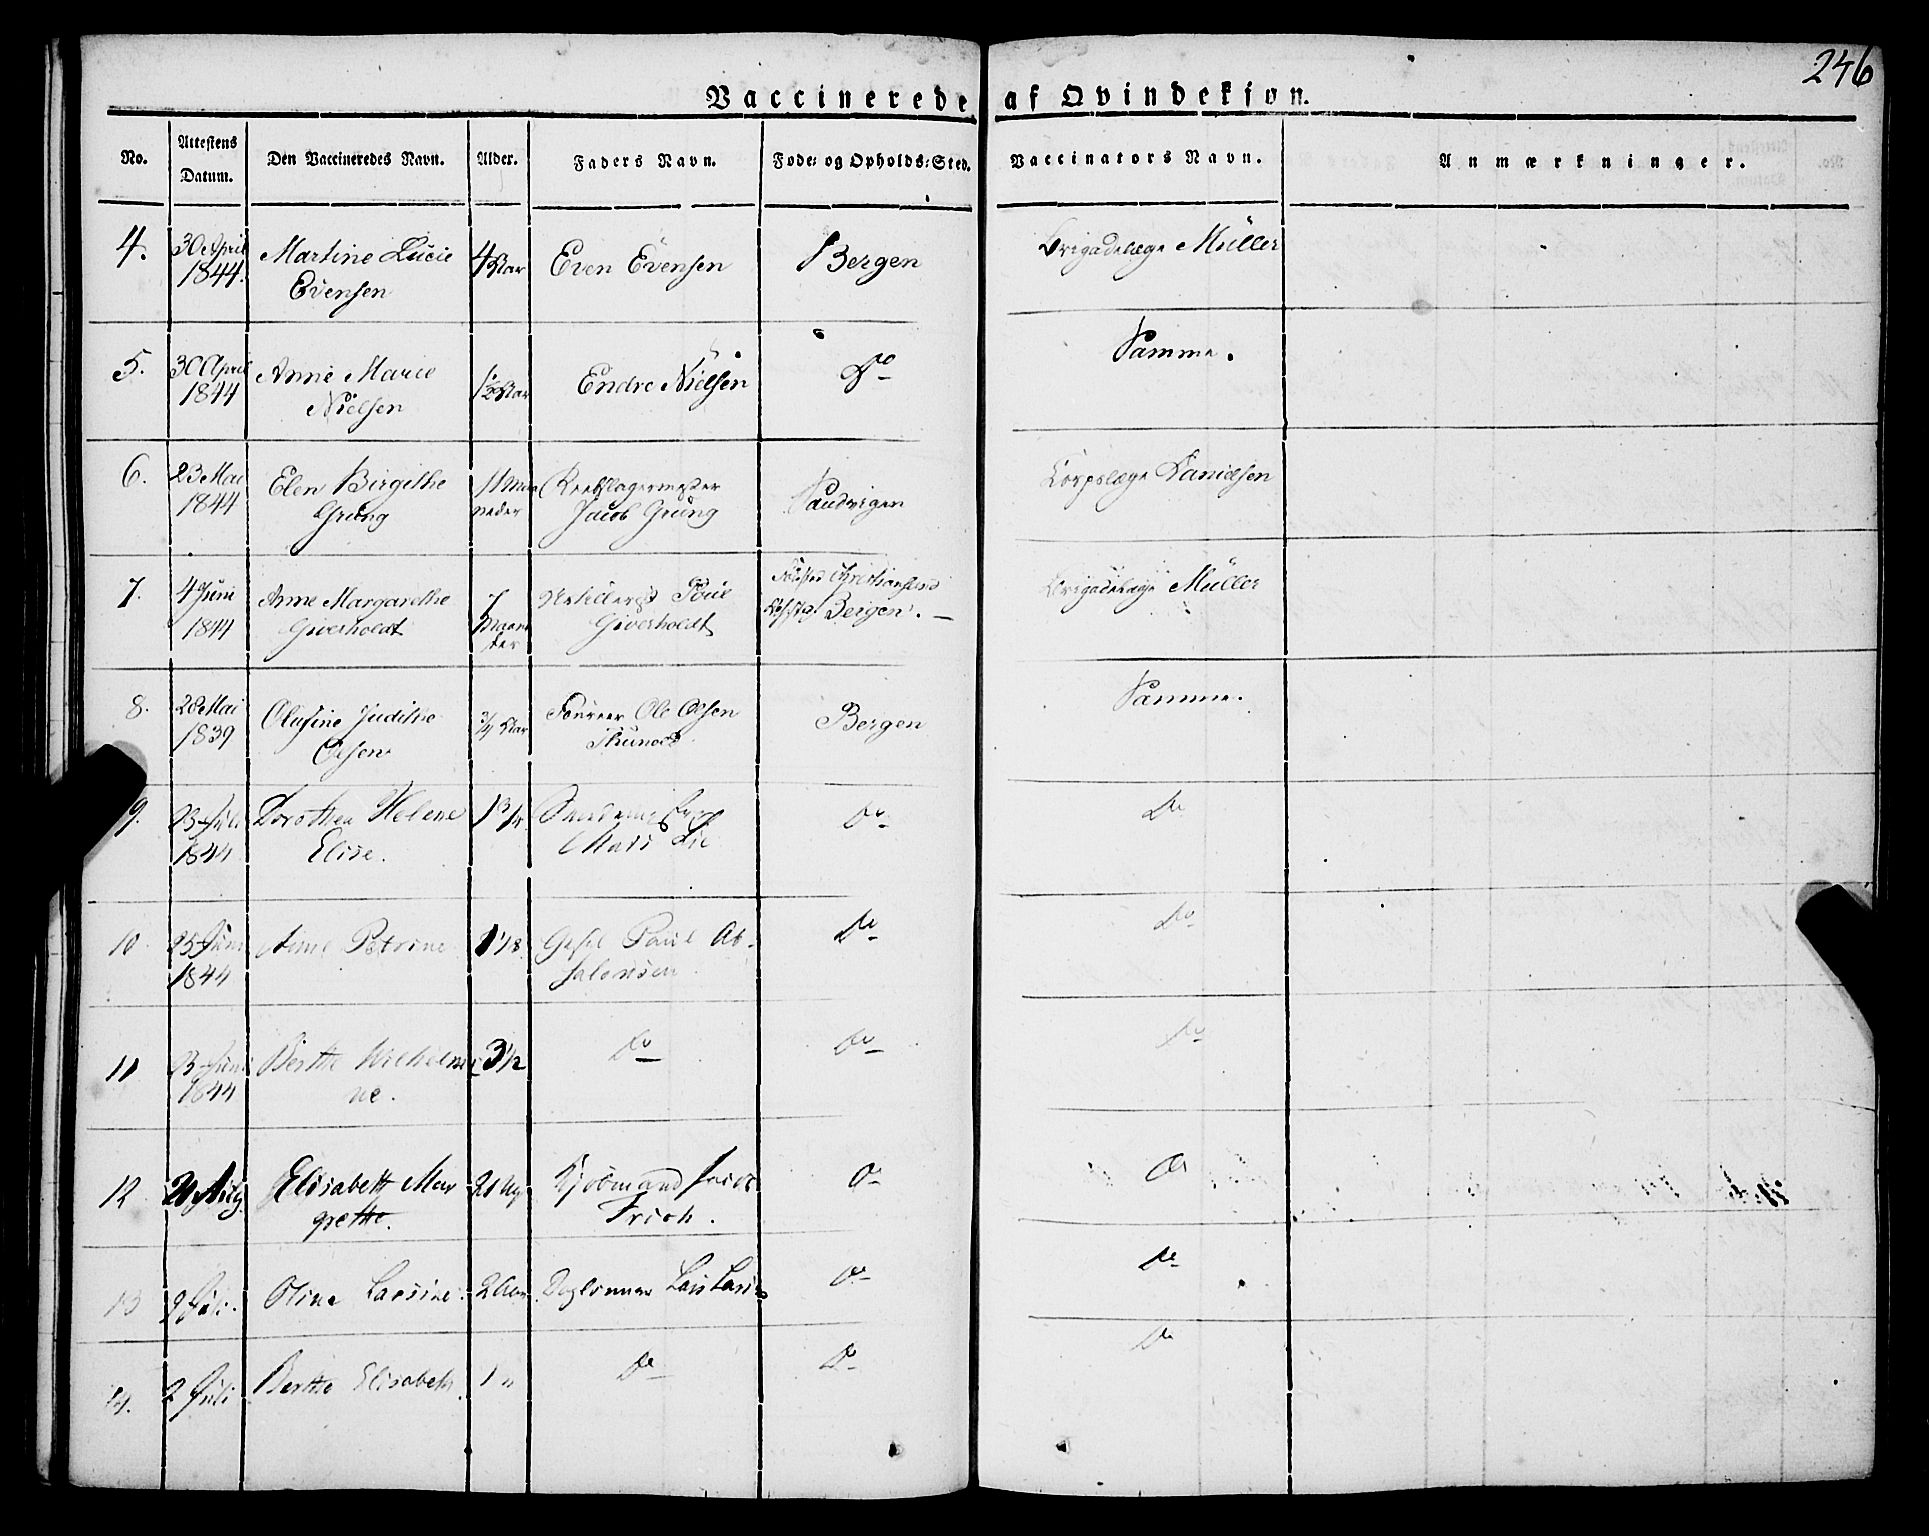 246
Vaccinerede af Qvindekjøn.
No. Attestens Datum. Den Vaccineredes Navn. Alder. Faders Navn. Føde- og Opholds-Sted. Vaccinators Navn. Anmærkninger.
4. 30 April 1844. Martine Lucie Evensen 4 Aar Even Evensen Bergen Brigadelæge Müller
5. 30 April 1844 Anne Marie Nielsen 1½ Aar Endre Nielsen Do Samme.
6. 23 Mai 1844 Elen Birgithe Grung 11 Maaneder Reebslagermester Jacob Grung Sandvigen Corpslæge Danielsen
7. 4 Juni 1844 Anne Margarethe Giverholdt 7 Maaneder Poul Giverholdt Christiansund Bergen. Brigadelæge Müller
8. 28 Mai 1839 Olusine Judithe Olsen 3/4 Aar Foureer Ole Olsen Bergen Samme.
9. 1844 Dorothea Helene Elise. 1 3/4 Mads Lie Do Do
10 25 Juni 1844 Anne Petrine 1 1/8 Paul Absalonsen Do Do
11 Juni 1844 Berthe Wilhelmine. 3½ Do Do Do
12 Elisabeth Margrethe. 2 Kjøbmand Do Do
13 2 Juli. Olina Larsine 2 Aar Lars Do Do
14. 2 Juli Berthe Elisabeth 1 " Do Do Do